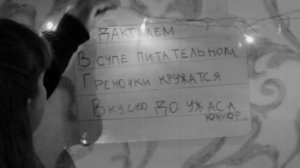 ДАКТИЛЕМ
В СУПЕ ПИТАТЕЛЬНОМ
ГРЕНОЧКИ КРУЖАТСЯ
ВКУСНО ДО УЖАСА
ЮНИОР